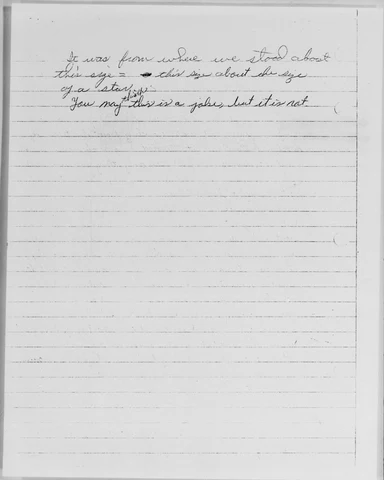 It was from where we stood about
this size = this size about the size
of a star.
You may think this is a joke, but it is not